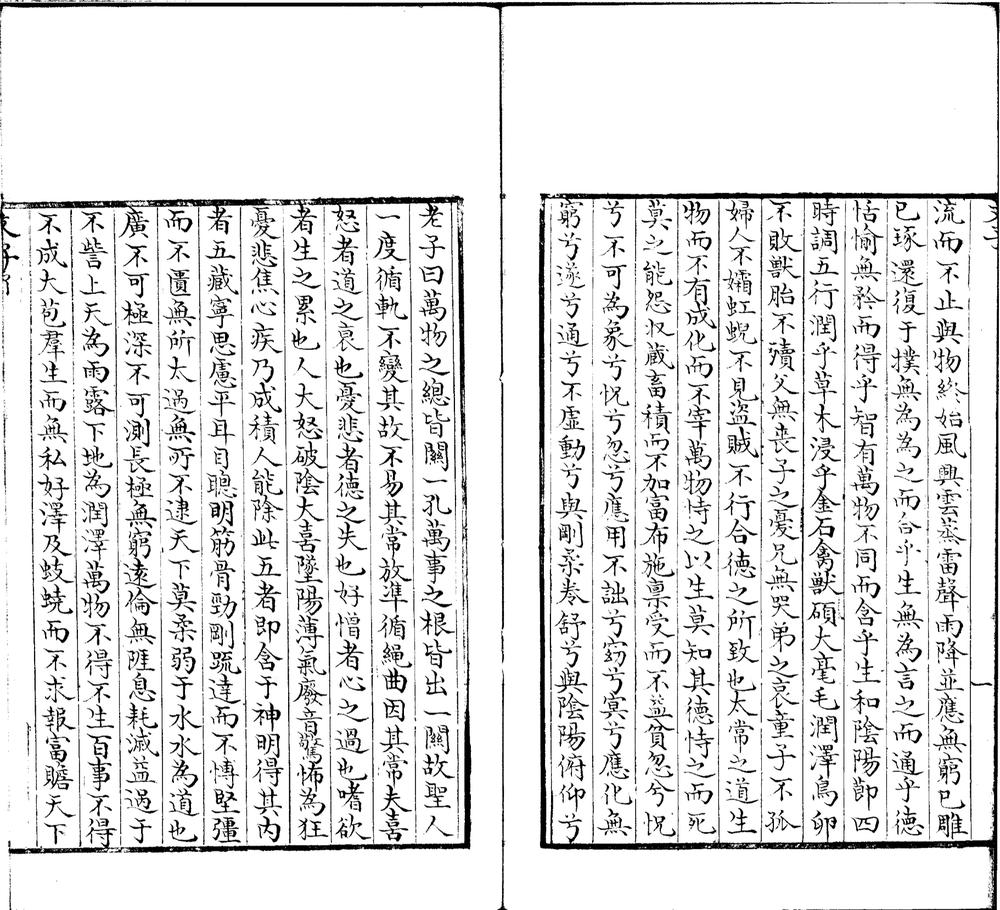 流而不止與物終始風興雲蒸雷聲雨降並應無窮已雕
已琢還復于撲無為為之而合乎生無為言之而通乎德
恬愉無矜而得乎智有萬物不同而合乎生和陰陽節四
時調五行潤乎草木浸乎金石禽獸碩大毫毛潤澤鳥卵
不敗獸胎不殰父無喪子之憂兄無哭弟之哀童子不孤
婦人不孀虹蜺不見盜賊不行含德之所致也太常之道生
物而不有成化而不宰萬物恃之以生莫知其德恃之而死
莫之能怨收藏畜積而不加富布施禀受而不益貧忽兮怳
兮不可為象兮怳兮忽兮應用不詘兮窈兮冥兮應化無
窮兮遂兮通兮不虛動兮與剛柔卷舒兮與陰陽俯仰兮
老子曰萬物之總皆閱一孔萬事之根皆出一關故聖人
一度循軌不變其故不易其常放凖循繩曲因其常夫喜
怒者道之衰也憂悲者德之失也好憎者心之過也嗜欲
者生之累也人大怒破陰大喜墜陽薄氣廢音驚怖為狂
憂悲焦心疾乃成積人能除此五者即含于神明得其內
者五藏寧思慮平耳目聰明筋骨勁剛疏達而不悖堅彊
而不匱無所太過無所不逮天下莫柔弱于水水為道也
廣不可極深不可測長極無窮遠倫無涯息耗減益過于
不訾上天為雨露下地為潤澤萬物不得不生百事不得
不成大苞羣生而無私好澤及蚑蟯而不求報富贍天下